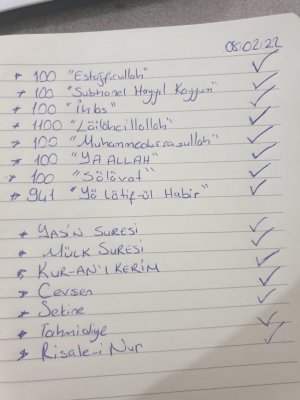 08.02.22
* 100 "Estağfirullah" ✓
* 100 "Subhanel Hayyil Kayyum" ✓
* 100 "İhlas" ✓
* 1100 "Lâilâheillallah" ✓
* 100 "Muhammedurrasullah" ✓
* 100 "YA ALLAH" ✓
* 100 "Sâlâvat" ✓
* 941 "Yâ Lâtif-ül Habir" ✓
* YASİN SURESİ ✓
* MÜLK SURESİ ✓
* KUR-AN'I KERİM ✓
* Cevşen ✓
* Sekine ✓
* Tahmidiye ✓
* Risale-i Nur ✓